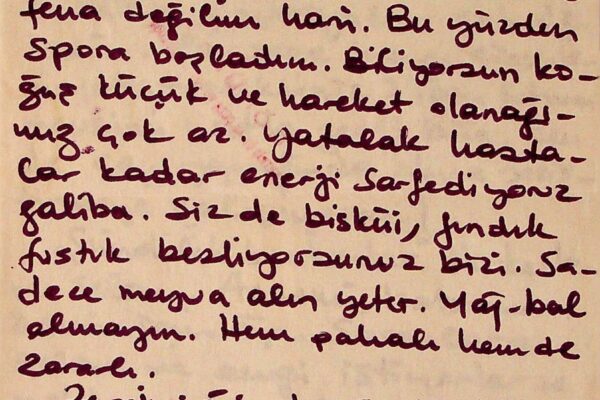 fena değilim hani. Bu yüzden
spora başladım. Biliyorsun ko-
ğuş küçük ve hareket olanağı-
mız çok az. Yatalak hasta-
lar kadar enerji sarfediyoruz
galiba. Siz de bisküi, fındık
fıstık besliyorsunuz bizi. Sa-
dece meyva alın yeter. Yağ-bal
almayın. Hem pahalı hem de
zararlı.